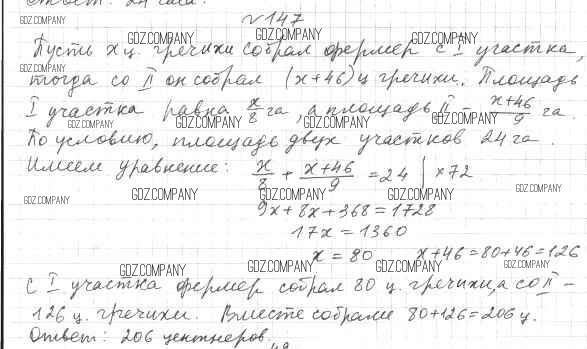 Ответ: 24 часа.
№147
GDZ.COMPANY GDZ.COMPANY GDZ.COMPANY GDZ.COMPANY
Пусть x ц. гречихи собрал фермер с I участка,
GDZ.COMPANY
тогда со II он собрал (x+46) ц гречихи. Площадь
I участка равна x/8 га, а площадь II – x+46/9 га.
GDZ.COMPANY GDZ.COMPANY GDZ.COMPANY GDZ.COMPANY
По условию, площадь двух участков 24 га.
Имеем уравнение: x/8 + x+46/9 = 24 | ×72
GDZ.COMPANY GDZ.COMPANY GDZ.COMPANY GDZ.COMPANY GDZ.COMPANY
9x+8x+368=1728
17x=1360
x=80 x+46=80+46=126
GDZ.COMPANY GDZ.COMPANY GDZ.COMPANY GDZ.COMPANY
С I участка фермер собрал 80 ц. гречихи, а со II –
126 ц. гречихи. Вместе собрали 80+126=206 ц.
Ответ: 206 центнеров.